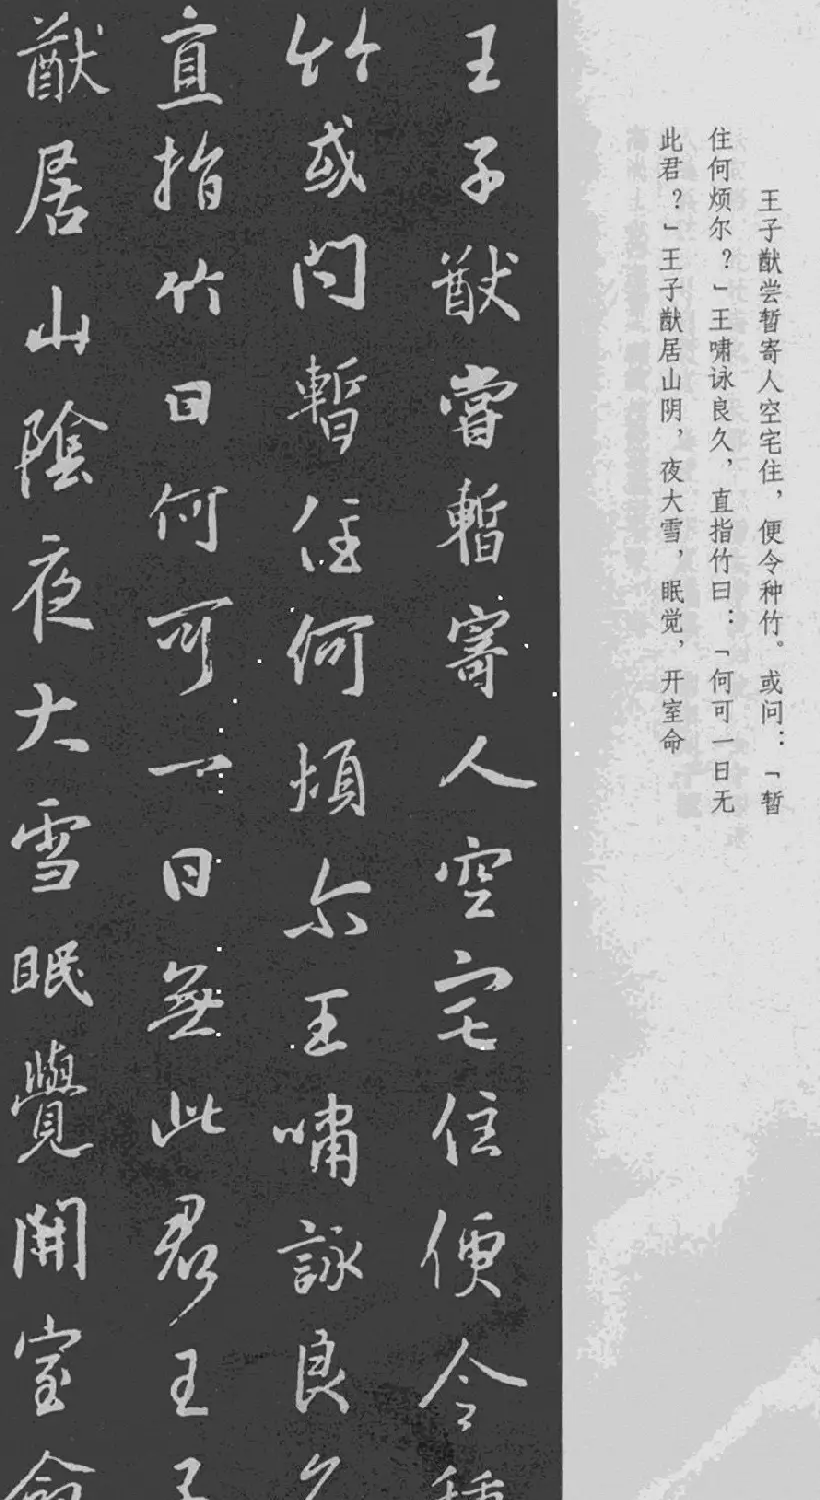 王子猷尝暂寄人空宅住，便令种竹。或问：「暂
住何烦尔？」王啸咏良久，直指竹曰：「何可一日无
此君？」王子猷居山阴，夜大雪，眠觉，开室命
王子猷嘗暫寄人空宅住便令種
竹或問暫住何煩尔王嘯詠良久
直指竹曰何可一日無此君王子
猷居山陰夜大雪眠覺開室命